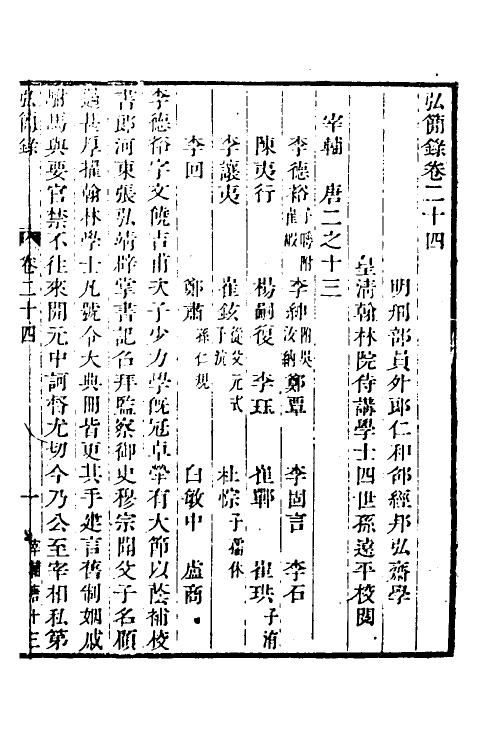 弘簡錄卷二十四
明刑部員外郎仁和邵經邦弘齋學
皇清翰林院侍講學士四世孫遠平校閱
宰輔 唐二之十三
李德裕子曄附崔嘏 李紳附吳汝納 鄭覃 李固言 李石
陳夷行 楊嗣復 李珏 崔鄲 崔珙子涓
李讓夷 崔鉉從父元式子沆 杜悰子孺休
李回 鄭肅孫仁規 白敏中 盧商
李德裕字文饒吉甫次子少力學旣冠卓犖有大節以蔭補校
書郎河東張弘靖辟掌書記召拜監察御史穆宗聞父子名顧
遇甚厚擢翰林學士凡號令大典冊皆更其手建言舊制姻戚
駙馬與要官禁不往來開元中訶督尤切今乃公至宰相私第
弘簡錄 卷二十四 一 宰輔唐十三